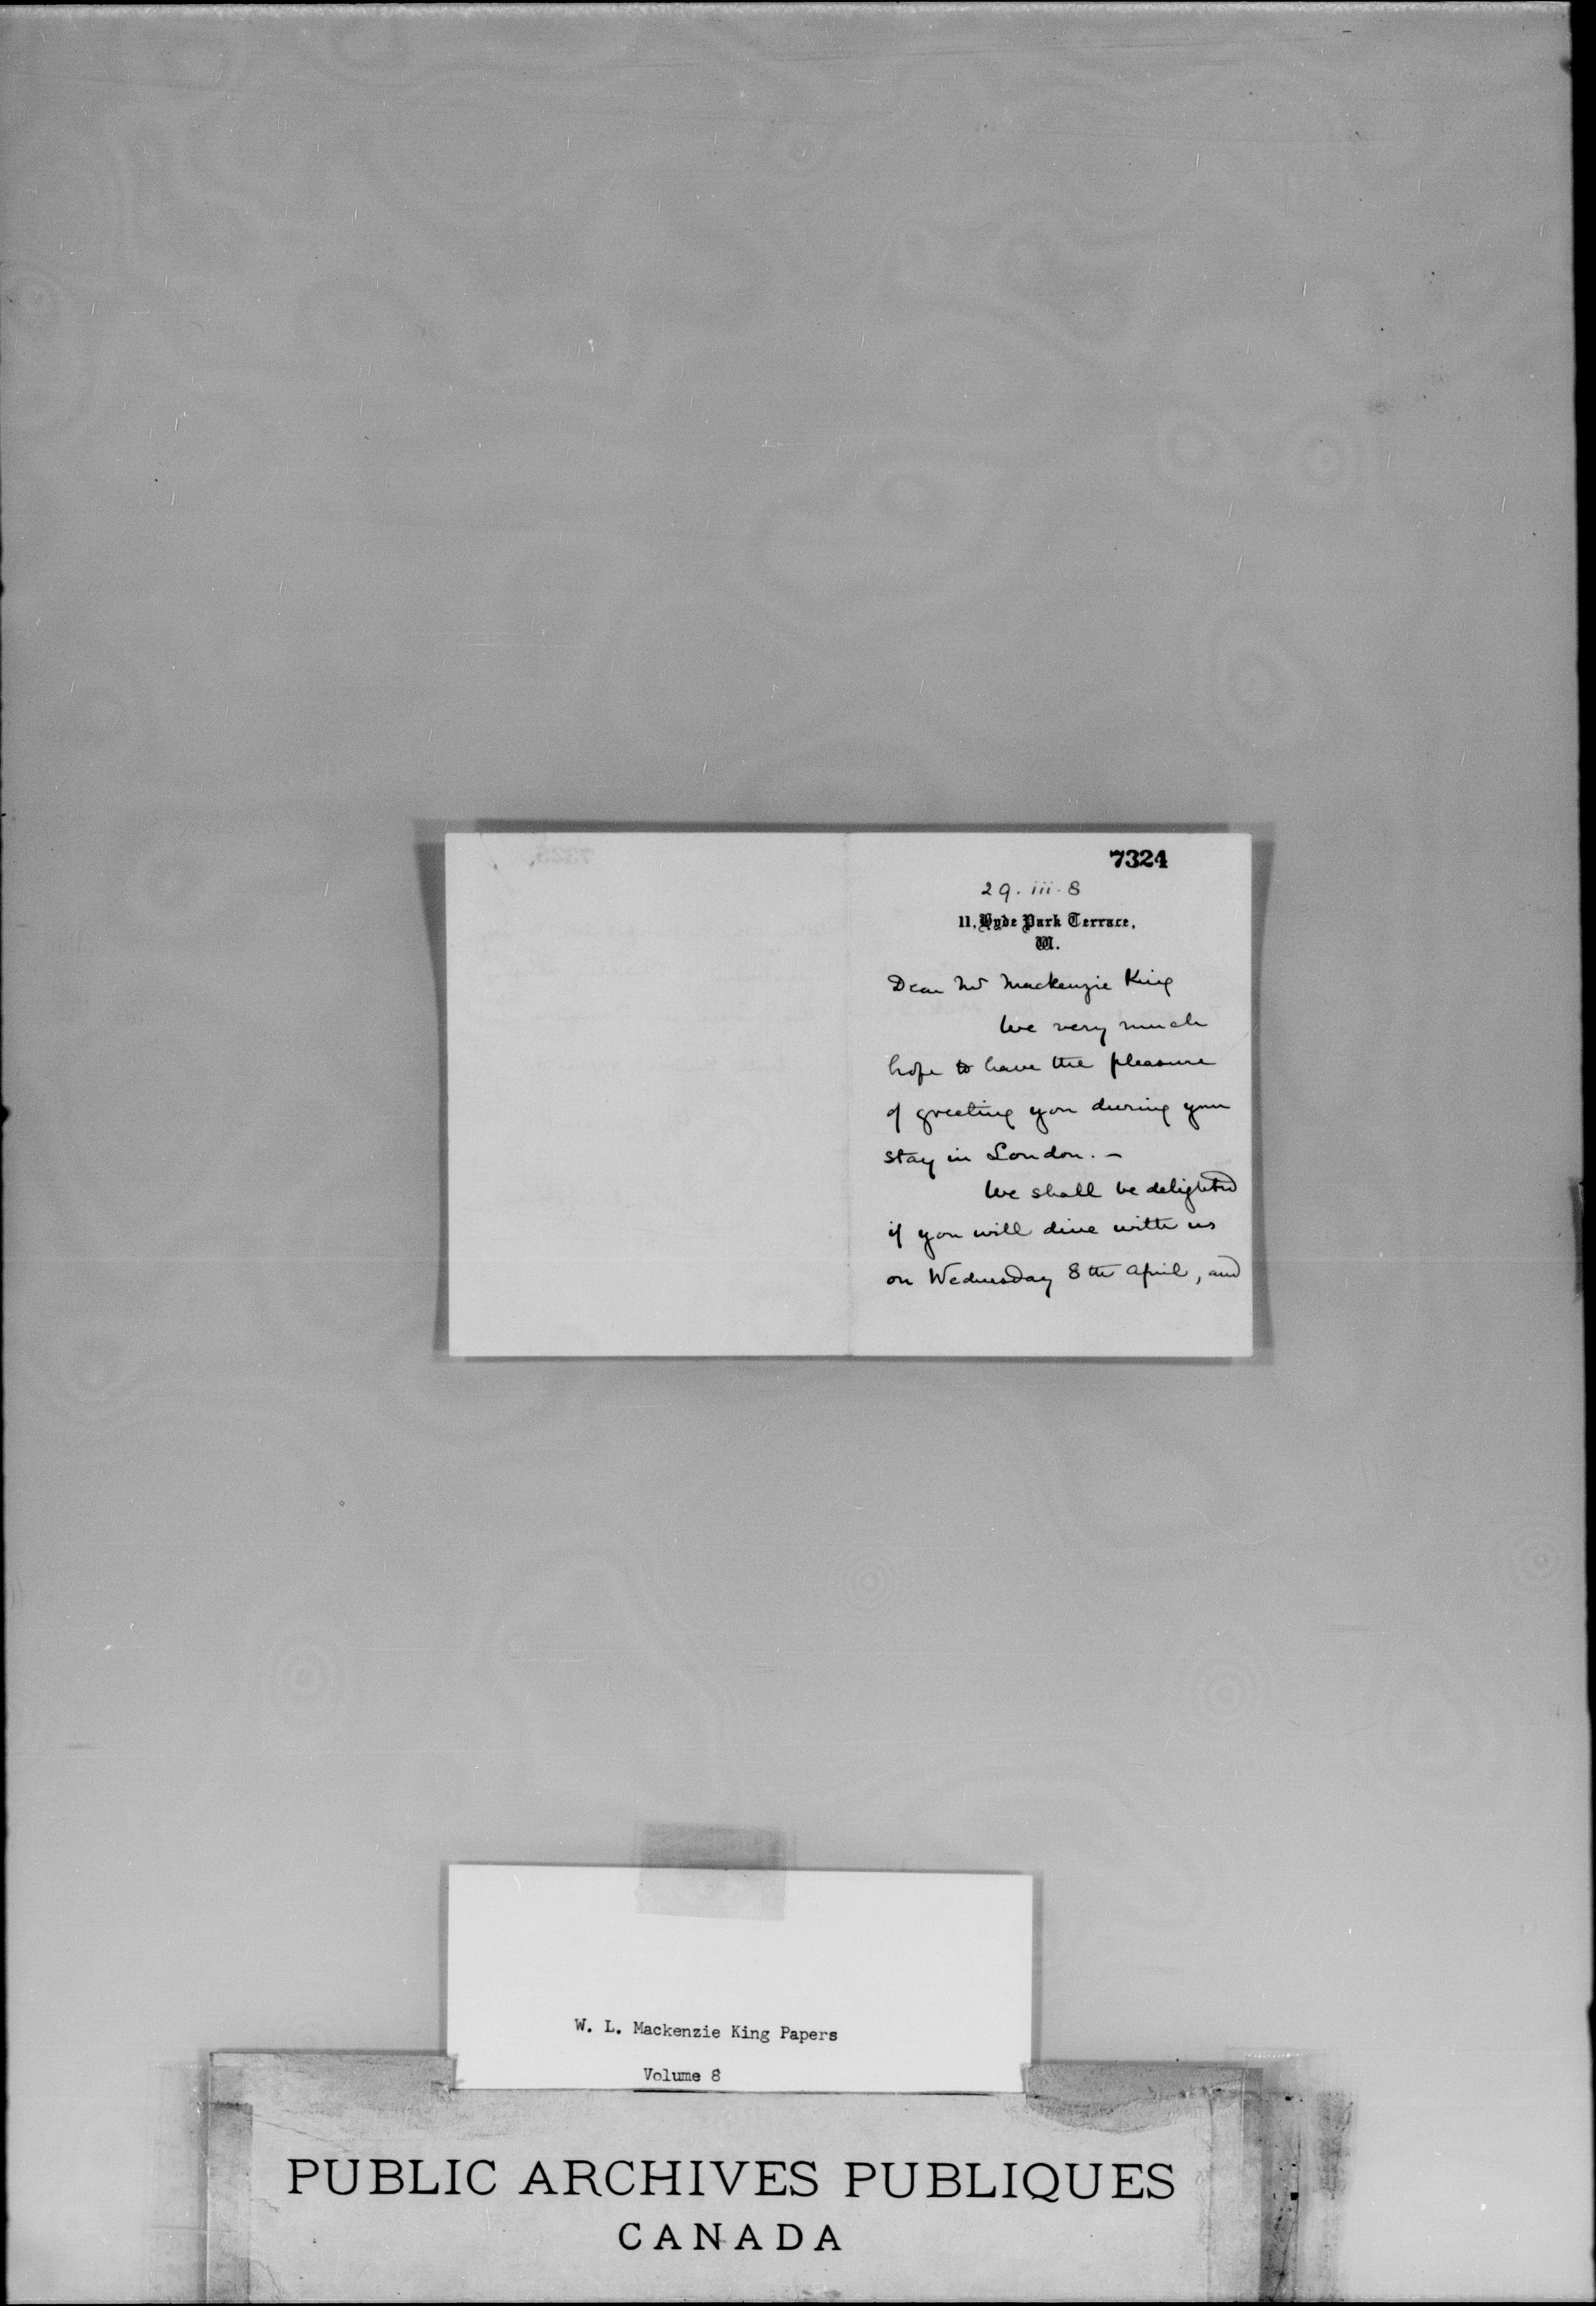 7324
29. iii. 8
11, Hyde Park Terrace,
W.
Dear Mr Mackenzie King
We very much
hope to have the pleasure
of greeting you during your
stay in London. –
We shall be delighted
if you will dine with us
on Wednesday 8th April, and
W. L. Mackenzie King Papers
Volume 8
PUBLIC ARCHIVES PUBLIQUES
CANADA